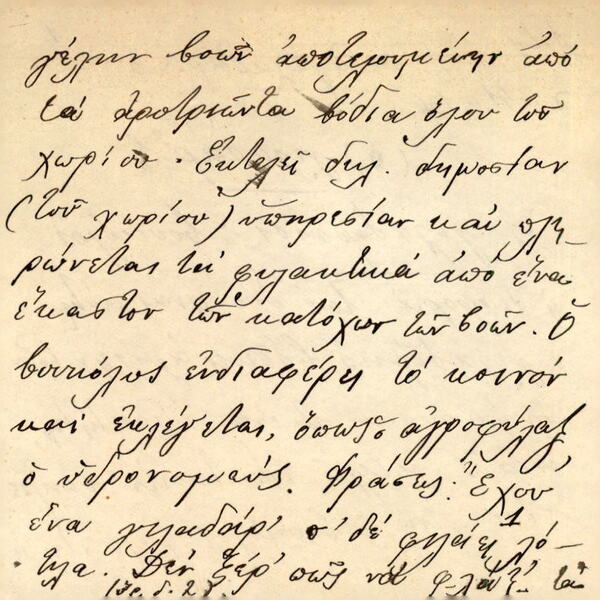 γέλην βοῶν ἀποτελουμένην ἀπό
τά ἀροτριῶντα βόδια ὅλου τοῦ
χωρίου. Ἐκτελεῖ δηλ. δημοσίαν
(τοῦ χωρίου) ὑπηρεσίαν καί πλη-
ρώνεται τά φυλακτικά ἀπό ἕνα
ἕκαστον τῶν κατόχων τῶν βοῶν. Ὁ
βουκόλος ἐνδιαφέρει τό κοινόν
καί ἐκλέγεται, ὅπως ὁ ἀγροφύλαξ,
ὁ ὑδρονομεύς. Φράσεις: Ἔχου
ἕνα γελαδάρ' π' δέ φυλάει 1 λό-
Δέν ξέρ' πῶς νά φ'λάξ' τά